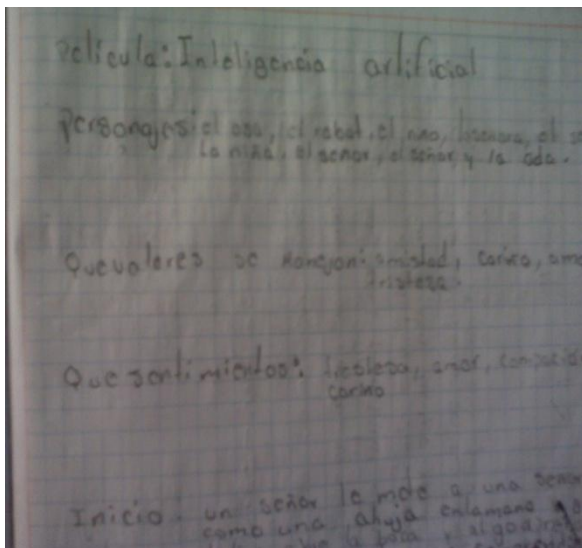 Película: Inteligencia artificial
Personajes: el oso, el robot, el niño, la señora, el
La niña, el señor, el señor y la ada.
Que valores se manejan: amistad, cariño,
tristeza.
Que sentimientos: tristeza, amor,
cariño
Inicio un señor le mete a una señor
como una ahuja en la mano